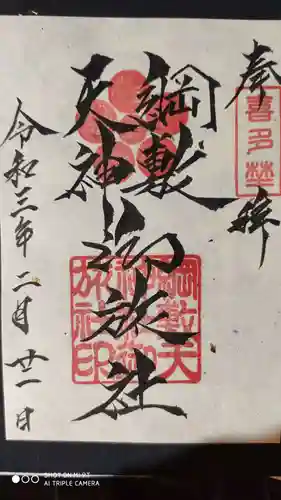 奉拝
喜多埜
綱敷
天神
御旅社
綱敷天
神社御
旅社印
令和三年二月廿一日
SHOT ON MI 9T
AI TRIPLE CAMERA